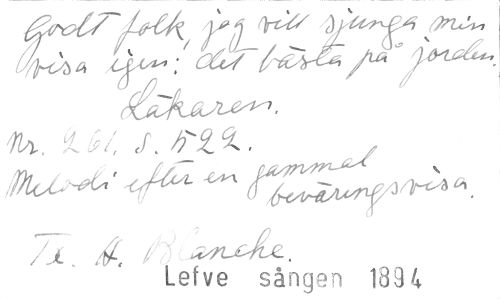 Godt folk, jag vill sjunga min
visa igen: det bästa på jorden.
Läkaren.
Nr. 261. S. 522.
Melodi efter en gammal
beväringsvisa.
Tx. A. Blanche.
Lefve sången 1894